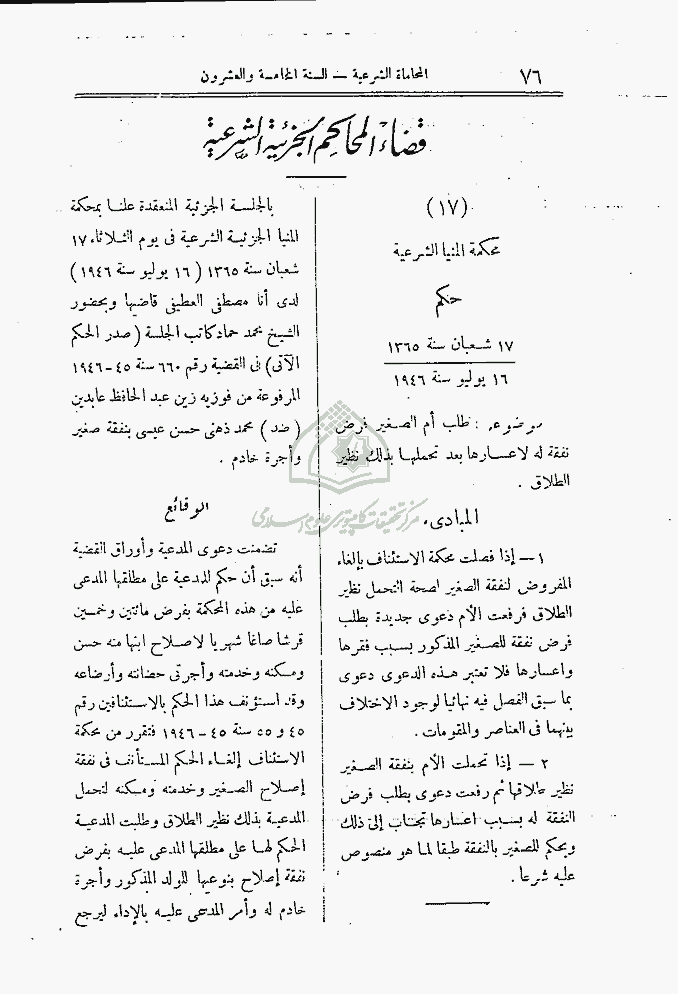 ٧٦
المحاماة الشرعية — السنة الخامسة والعشرون
قضاء المحاكم الجزئية الشرعية
(١٧)
محكمة المنيا الشرعية
حكم
١٧ شعبان سنة ١٣٦٥
١٦ يوليو سنة ١٩٤٦
موضوع : طلب أم الصغير فرض
نفقة له لاعسارها بعد تحملها بذلك نظير
الطلاق .
المبادىء
١ — إذا فصلت محكمة الاستئناف بإلغاء
المفروض لنفقة الصغير لصحة التحمل نظير
الطلاق فرفعت الأم دعوى جديدة بطلب
فرض نفقة للصغير المذكور بسبب فقرها
واعسارها فلا تعتبر هذه الدعوى دعوى
بما سبق الفصل فيه نهائيا لوجود الاختلاف
بينهما فى العناصر والمقومات .
٢ — إذا تحملت الأم بنفقة الصغير
نظير طلاقها ثم رفعت دعوى بطلب فرض
النفقة له بسبب اعسارها تجاب إلى ذلك
ويحكم للصغير بالنفقة طبقا لما هو منصوص
عليه شرعا .
بالجلسة الجزئية المنعقدة علنا بمحكمة
المنيا الجزئية الشرعية فى يوم الثلاثاء ١٧
شعبان سنة ١٣٦٥ ( ١٦ يوليو سنة ١٩٤٦ )
لدى أنا مصطفى العطيفى قاضيها وبحضور
الشيخ محمد حماد كاتب الجلسة ( صدر الحكم
الآتى ) فى القضية رقم ٦٦٠ سنة ٤٥ – ١٩٤٦
المرفوعة من فوزيه زين عبد الحافظ عابدين
( ضد ) محمد ذهنى حسن عيسى بنفقة صغير
وأجرة خادم .
الوقائع
تضمنت دعوى المدعية وأوراق القضية
أنه سبق أن حكم للمدعية على مطلقها المدعى
عليه من هذه المحكمة بفرض مائتين وخمسين
قرشا صاغا شهريا لاصلاح ابنها منه حسن
ومسكنه وخدمته وأجرتى حضانته وأرضاعه
وقد استؤنف هذا الحكم بالاستئنافين رقم
٤٥ و ٥٥ سنة ٤٥ – ١٩٤٦ فتقرر من محكمة
الاستئناف إلغاء الحكم المستأنف فى نفقة
إصلاح الصغير وخدمته ومسكنه لتحمل
المدعية بذلك نظير الطلاق وطلبت المدعية
الحكم لها على مطلقها المدعى عليه بفرض
نفقة إصلاح بنوعيها للولد المذكور وأجرة
خادم له وأمر المدعى عليه بالأداء ليرجع
مرکز تحقیقات کامپیوتری علوم اسلامی